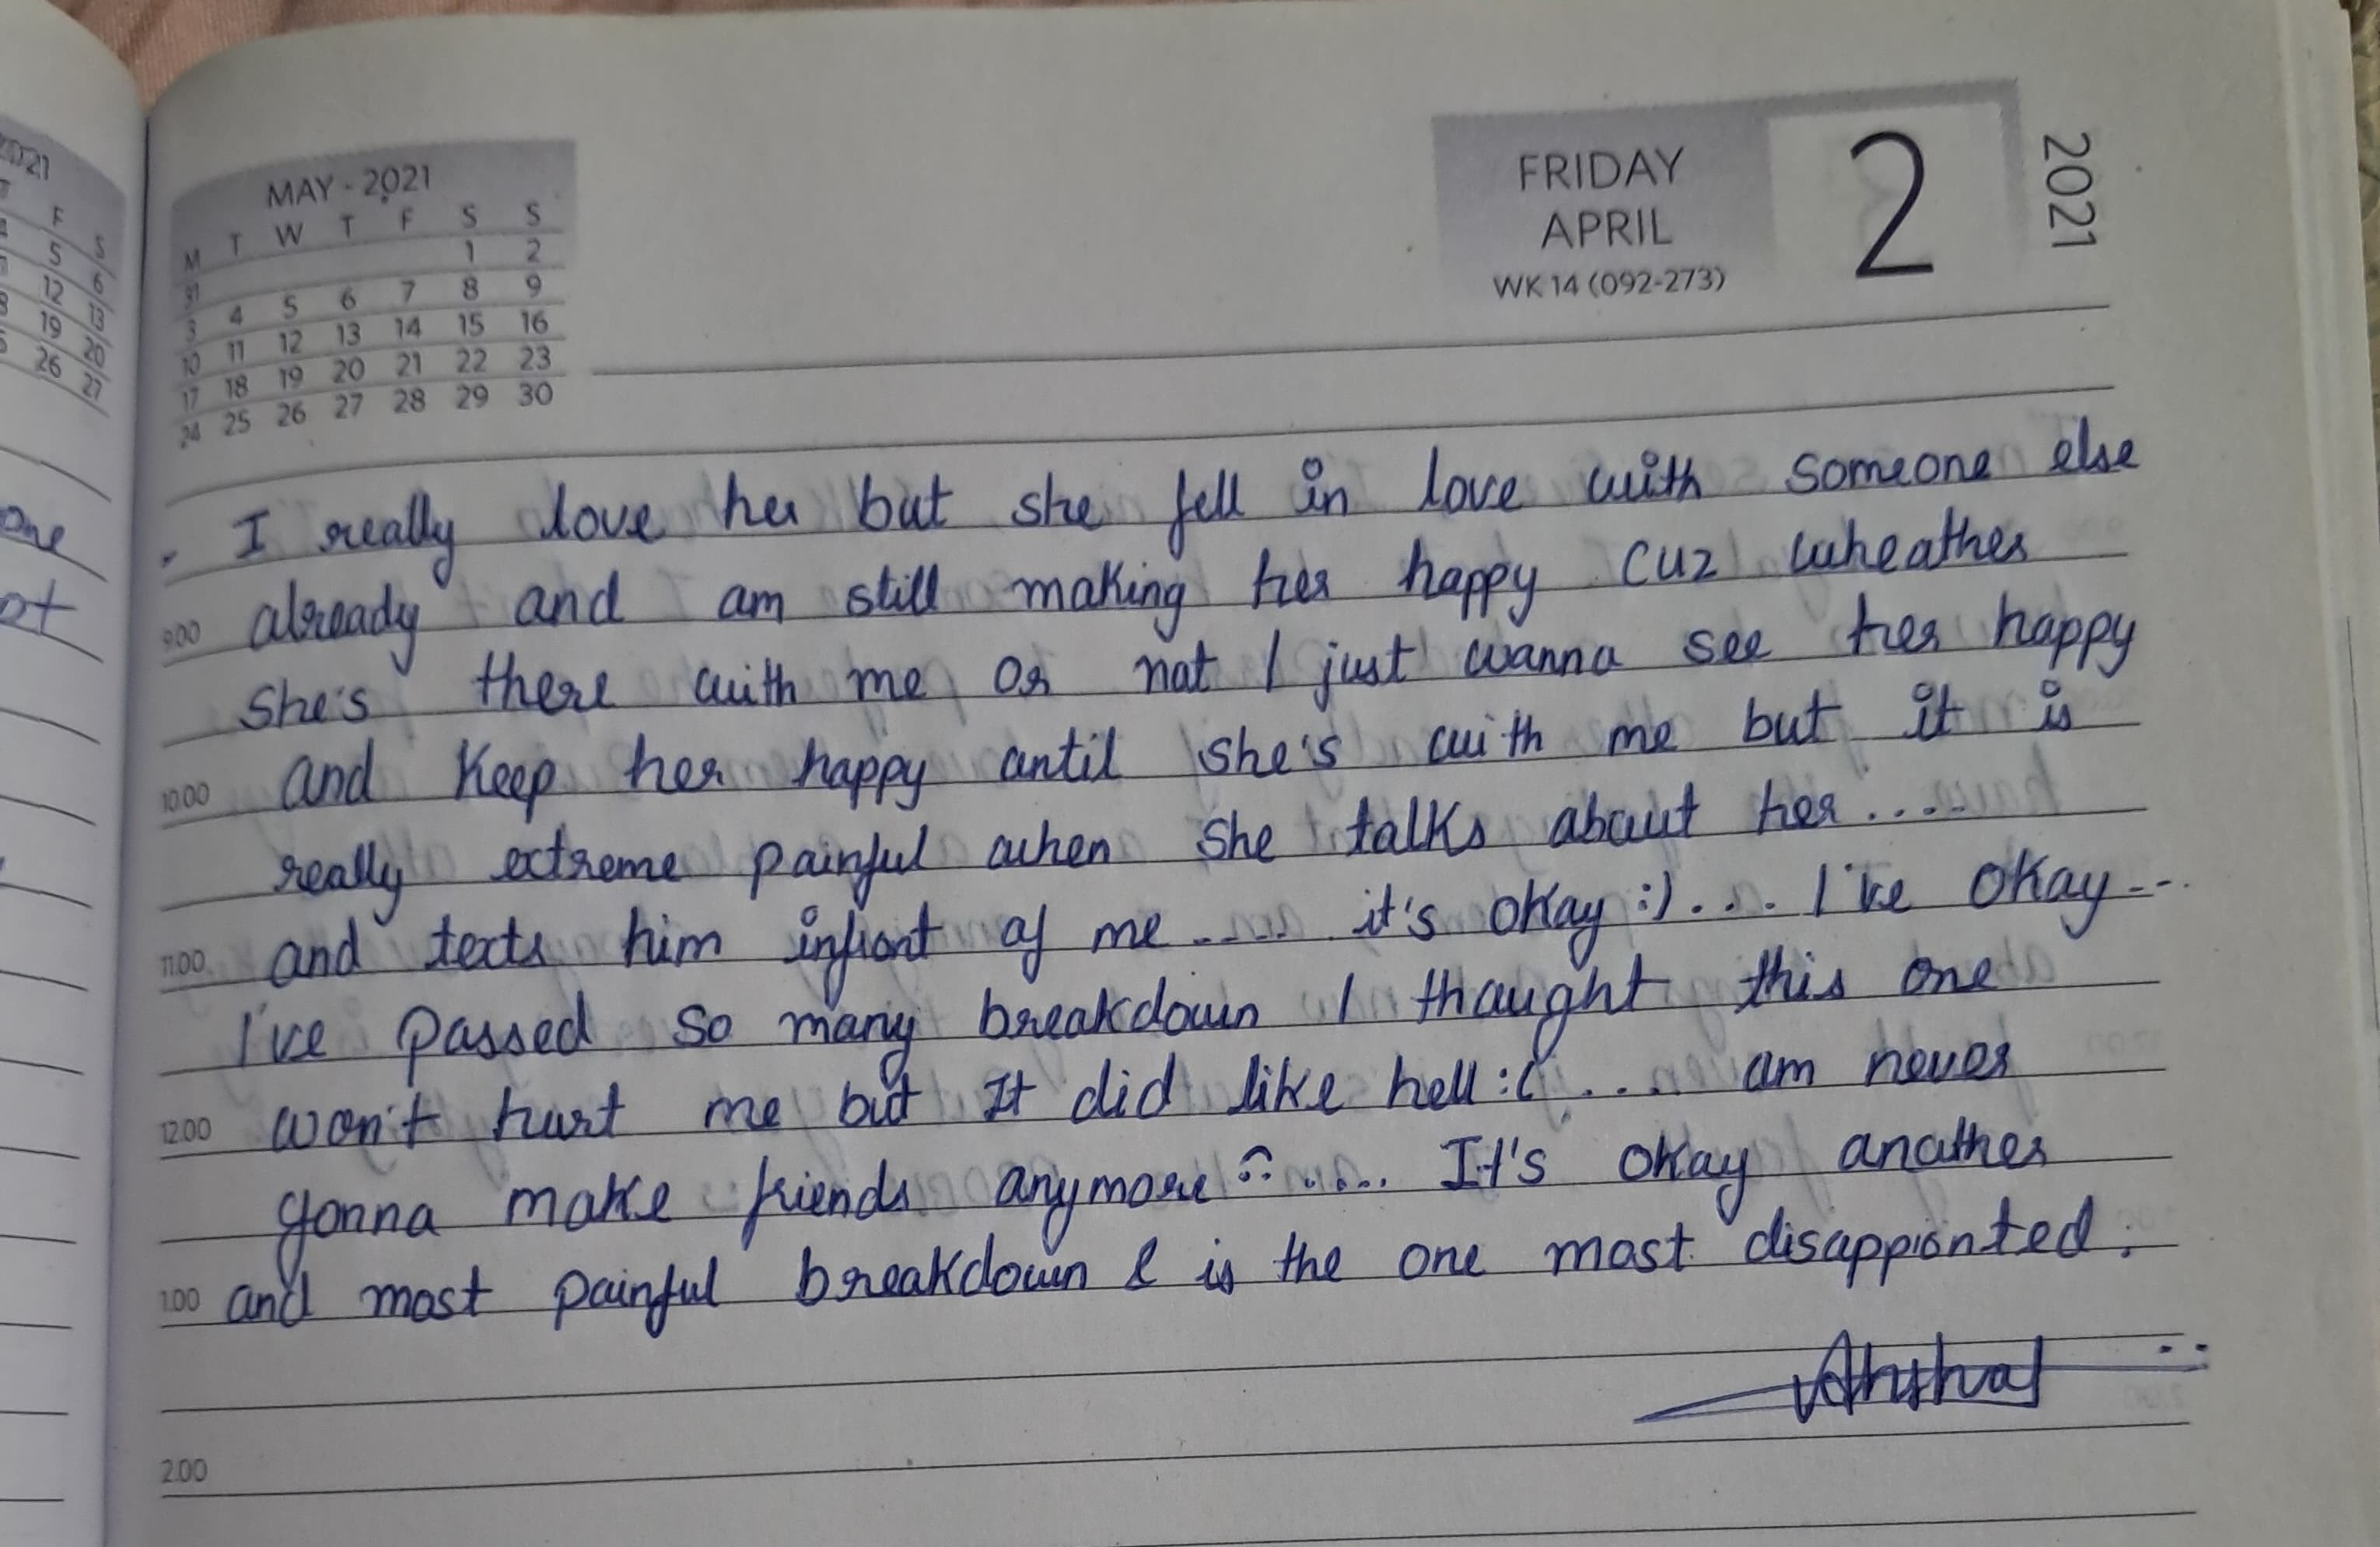 2021
F S
5 6
12 13
19 20
26 27
one
ot
MAY - 2021
M T W T F S S
31 1 2
3 4 5 6 7 8 9
10 11 12 13 14 15 16
17 18 19 20 21 22 23
24 25 26 27 28 29 30
FRIDAY
APRIL
WK 14 (092-273)
2
2021
I really love her but she fell in love with someone else
9.00 already and am still making her happy cuz wheather
she's there with me or not I just wanna see her happy
10.00 and keep her happy until she's with me but it is
really extreme painful when she talks about her.....
11.00 and texts him infront of me ..... it's okay :).... I've okay...
I've passed so many breakdown I thought this one
12.00 won't hurt me but It did like hell :( .... am never
gonna make friends anymore :( ..... It's okay another
1.00 and most painful breakdown & is the one most disappionted.
2.00